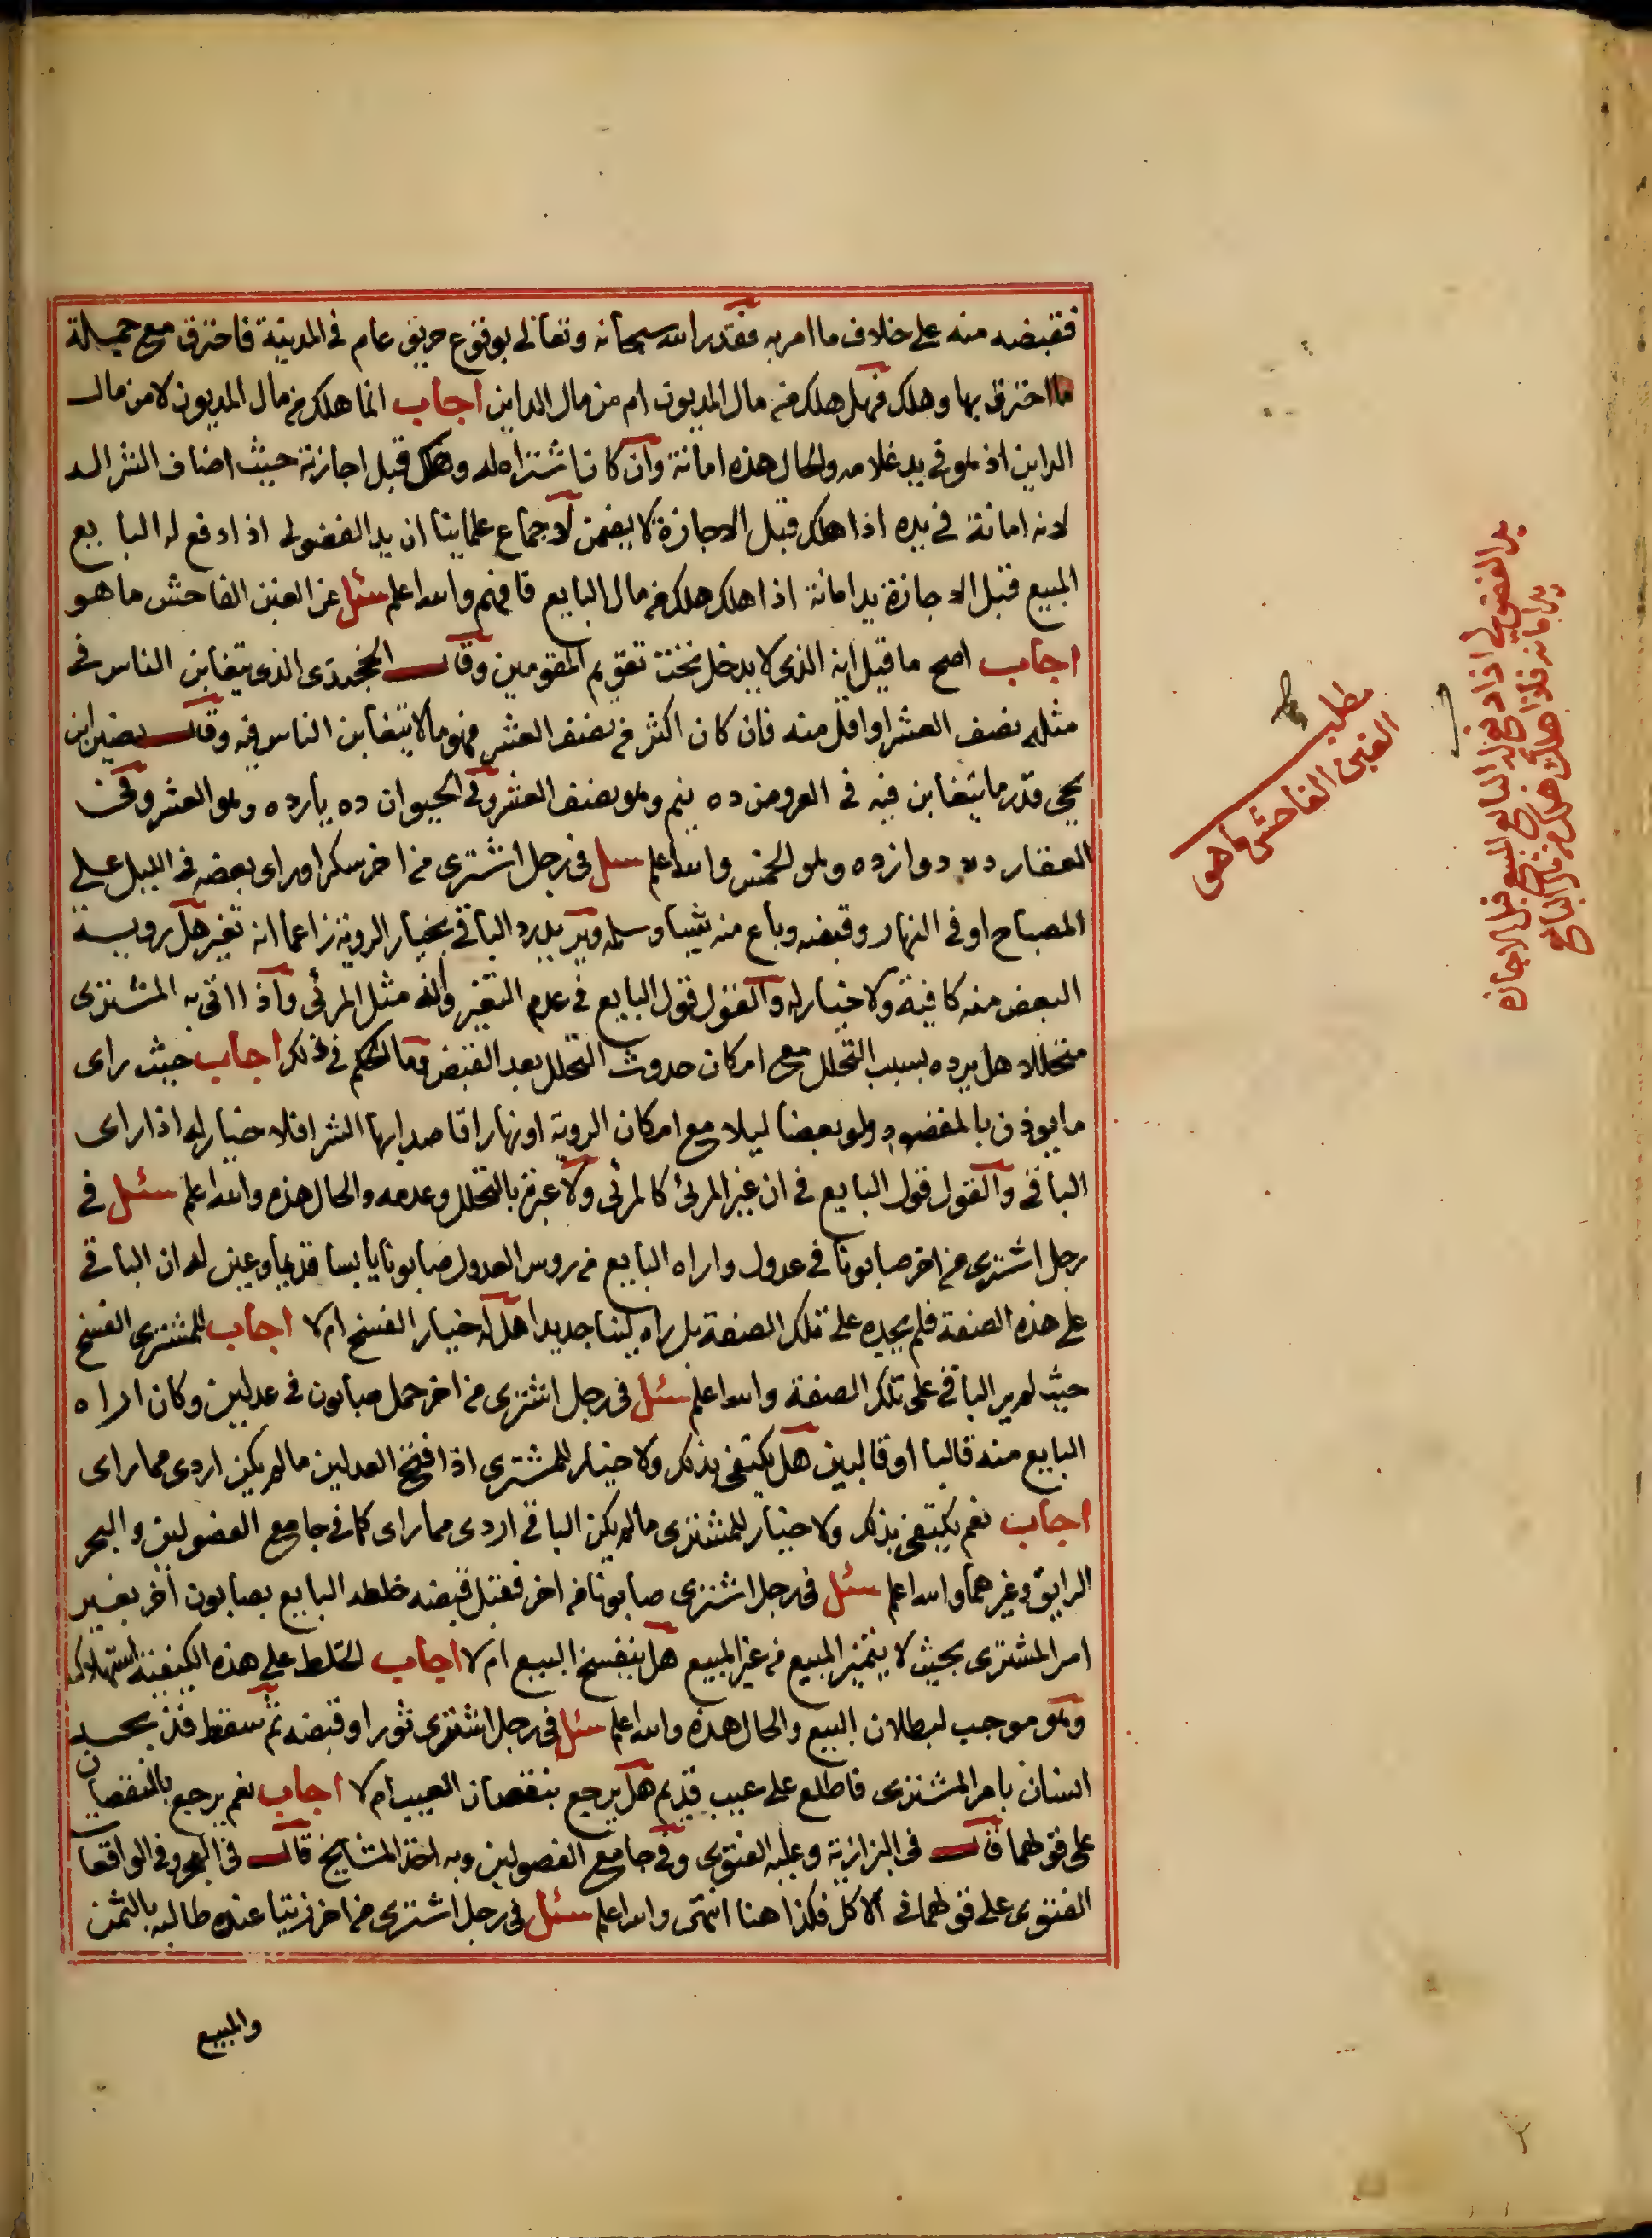 فقبضه منه على خلاف ما امر به فقدر الله سبحانه وتعالى بوقوع حريق عام في المدينة فاحترق مع جملة
ما احترق بها وهلك فهل هلك من مال المديون ام من مال الداين اجاب انما هلك من مال المديون لا من مال
الداين اذ هو في يد غلامه والحال هذه امانة وان كان اشتراه له وهلك قبل اجازته حيث اضاف الشرا اليه
لانه امانة في يده اذا هلك قبل الاجازة لا يضمن لاجماع علماينا ان يد الفضولي اذا دفع له البايع
المبيع قبل الاجازة يد امانة اذا هلك هلك من مال البايع فافهم والله اعلم سئل عن الغبن الفاحش ما هو
اجاب اصح ما قيل انه الذي لا يدخل تحت تقويم المقومين وقال الخجندي الذي يتغابن الناس في
مثله نصف العشر او اقل منه فان كان اكثر من نصف العشر فهو مما لا يتغابن الناس فيه وقال نصير ابن
يحيى قدر ما يتغابن فيه في العروض ده نيم وهو نصف العشر وفي الحيوان ده يازده وهو العشر وفي
العقار ده دوازده وهو الخمس والله اعلم سئل في رجل اشترى من اخر سكرا وراى بعضه في الليل على
المصباح او في النهار وقبضه وباع منه شيئا وسلمه ويريد رد الباقي بخيار الروية زاعما انه تغير هل روية
البعض منه كافية ولا خيار له والقول قول البايع في عدم التغير وانه مثل المرئي واذا اتى به المشتري
متخللا هل يرده بسبب التخلل مع امكان حدوث التخلل بعد القبض وما الحكم في ذلك اجاب حيث راى
ما يوذن بالمقصود ولو بعضا ليلا مع امكان الروية او نهارا قاصدا بها الشرا فلا خيار له اذا راى
الباقي والقول قول البايع في ان غير المرئي كالمرئي ولا عبرة بالتخلل وعدمه والحال هذه والله اعلم سئل في
رجل اشترى من اخر صابونا في عدول واراه البايع من روس العدول صابونا يابسا قديما وعين له ان الباقي
على هذه الصفة فلم يجده على تلك الصفة بل راه لينا جديدا هل له خيار الفسخ ام لا اجاب للمشتري الفسخ
حيث لم ير الباقي على تلك الصفة والله اعلم سئل في رجل اشترى من اخر حمل صابون في عدلين وكان اراه
البايع منه قالبا او قالبين هل يكتفي بذلك ولا خيار للمشتري اذا فتح العدلين ما لم يكن اردى مما راى
اجاب نعم يكتفي بذلك ولا خيار للمشتري ما لم يكن الباقي اردى مما راى كما في جامع الفصولين والبحر
الرايق وغيرهما والله اعلم سئل في رجل اشترى صابونا من اخر فقبل قبضه خلطه البايع بصابون آخر بغير
امر المشتري بحيث لا يتميز المبيع من غير المبيع هل ينفسخ البيع ام لا اجاب الخلط على هذه الكيفية استهلاك
وهو موجب لبطلان البيع والحال هذه والله اعلم سئل في رجل اشترى ثورا وقبضه ثم سقط فذبحه
انسان بامر المشتري فاطلع على عيب قديم هل يرجع بنقصان العيب ام لا اجاب نعم يرجع بالنقصان
على قولهما قال في البزازية وعليه الفتوى وفي جامع الفصولين وبه اخذ المشايخ قال في البحر وفي الواقعات
الفتوى على قولهما في الاكل فكذا هنا انتهى والله اعلم سئل في رجل اشترى من اخر زيتا عنده طالبه بالثمن
والمبيع
مطلب
الغبن الفاحش ما هو
يد الفضولي اذا دفع له البايع المبيع قبل الاجازة
يد امانة فلو اهلك هلك من مال البايع